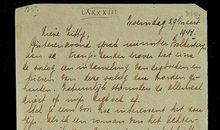 LXXXIII
Woensdag 29 Maart
1944.
Lieve Kitty,
Gisteren avond sprak minister Bolkestein
aan de Oranje-zender erover dat er na
de oorlog een inzameling van dagboeken en
brieven van deze oorlog zou worden ge-
houden. Natuurlijk stormden ze allemaal
direct op mijn dagboek af.
Stel je eens voor hoe interessant het zou
zijn, als ik een roman van het Achter-